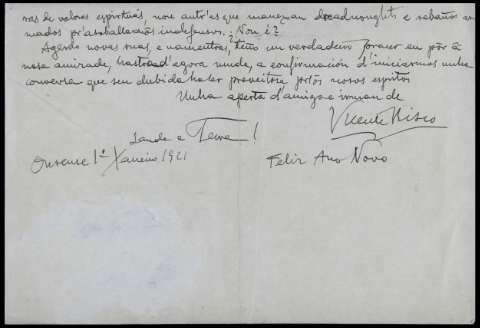 ras de valores espirituás, non autr'es que manexan dreadnoughts e rabaños ar
mados pr'asoballaren indefensos. ¿Non é?
Agardo novas suas, e namentras, teño un verdadeiro
nosa amizade, hastr'agora muda, a confirmación d'iniciarmos unha
conversa que sen dubida ha ser proveitosa pr'ós nosos espritos
Unha aperta d'amigo e irman de
Vicente Risco
Saude e Terra!
Ourense 1º Xaneiro 1921
Feliz Ano Novo